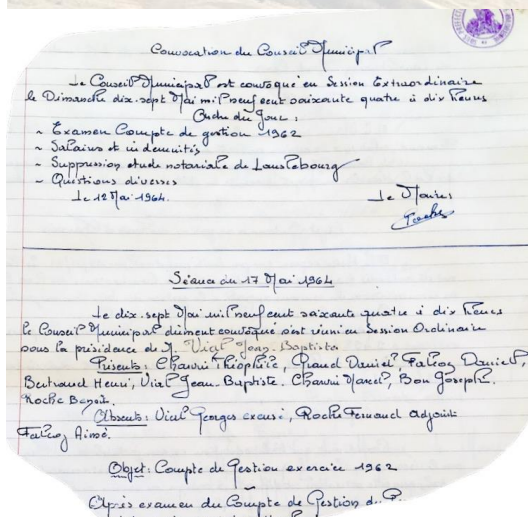 Convocation du Conseil Municipal
Le Conseil Municipal est convoqué en Session Extraordinaire
le Dimanche dix-sept Mai mil neuf cent soixante quatre à dix heures
Ordre du Jour :
~ Examen Compte de gestion 1962
~ Salaires et indemnités
~ Suppression etude notariale de Lanslebourg
~ Questions diverses
Le 12 Mai 1964. Le Maire
Roche
Séance du 17 Mai 1964
Le dix-sept Mai mil neuf cent soixante quatre à dix heures
le Conseil Municipal dûment convoqué s'est réuni en Session Ordinaire
sous la présidence de M. Vial Jean-Baptiste
Présents : Charvin Théophile, Daniel, Falcoz Daniel,
Bertrand Henri, Vial Jean-Baptiste. Charvin Marcel, Bon Joseph.
Roche Benoit.
Absents : Vial Georges excusé, Roche Fernand adjoint
Falcoz Aimé.
Objet : Compte de Gestion exercice 1962
Après examen du Compte de Gestion